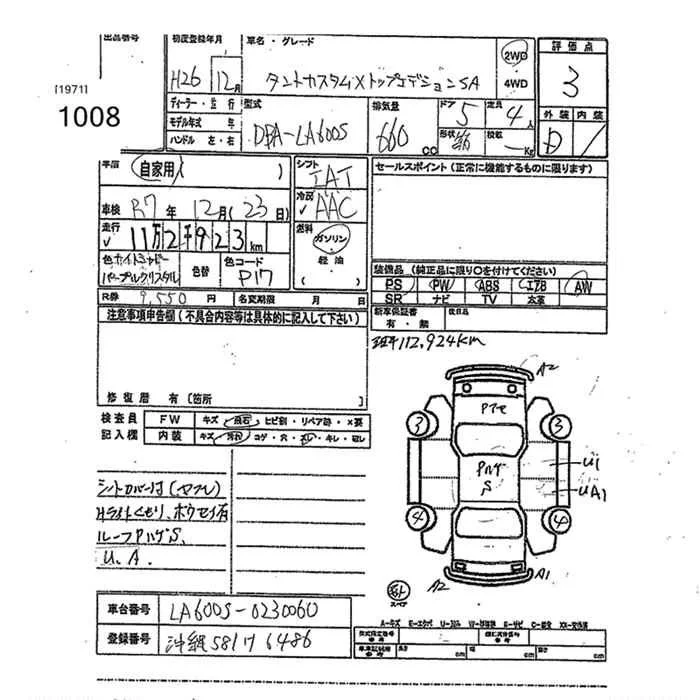 出品番号
初度登録年月
車名・グレード
2WD
評価点
[1971]
1008
H26 12月
タントカスタムXトップエディションSA
4WD
3
ディーラー・並行
型式
排気量
ドア
定員
外装 内装
モデル年式 年
DBA-LA600S
660 cc
5
4人
D
ハンドル 左・右
形状 箱
積載 — Kg
車歴
自家用 ( )
シフト
IAT
セールスポイント(正常に機能するものに限ります)
車検 R7年 12月(23日)
冷房
AAC
走行
11万2千923km
燃料
ガソリン
軽油
色 ホワイト
パープルクリスタル
色替
色コード
P17
( )
装備品(純正品に限り○を付けてください)
PS PW ABS エアB AW
SR ナビ TV 本革
R券 9,550円
名変期限 月 日
新車保証書
有・無
後日品
注意事項申告欄(不具合内容等は具体的に記入して下さい)
現車112,924km
修復歴 有〔箇所 〕
検査員
記入欄
FW
キズ・飛石・ヒビ割・リペア跡・×要
内装
キズ・汚れ・コゲ・穴・スレ・キレ
A2
Pアセ
3
3
Pハゲ
S
U1
UA1
4
4
A2
A1
スペア
シートカバー付(ヤブレ)
Hライトくもり、ホウセイ有
ルーフPハゲS、
U.A.
車台番号
LA600S-0230060
登録番号
沖縄581り6486
A-キズ E-エクボ U-凹み W-修理跡 S-サビ C-腐食 XX-交換済
車体寸法
長さ cm
幅 cm
高さ cm